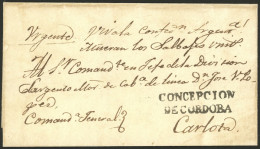 Urgente Viva la Confedn. Argenta.!
Mueran los Salbajes Units.
Al Sr. Comandte. en Jefe de la Division
Sargento Mor. de Caba. de linea Dn. Jose
Comande. Genral
CONCEPCION
DE CORDOBA
Carlota